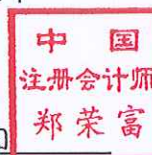 中国
注册会计师
郑荣富